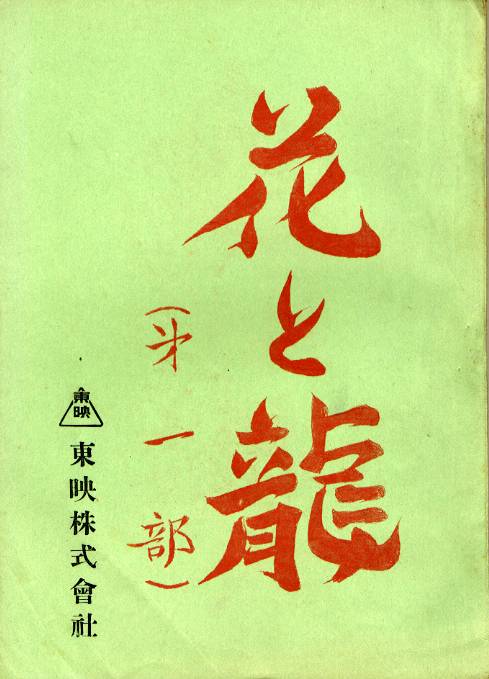 花と龍
（㐧一部）
東映
東映株式會社